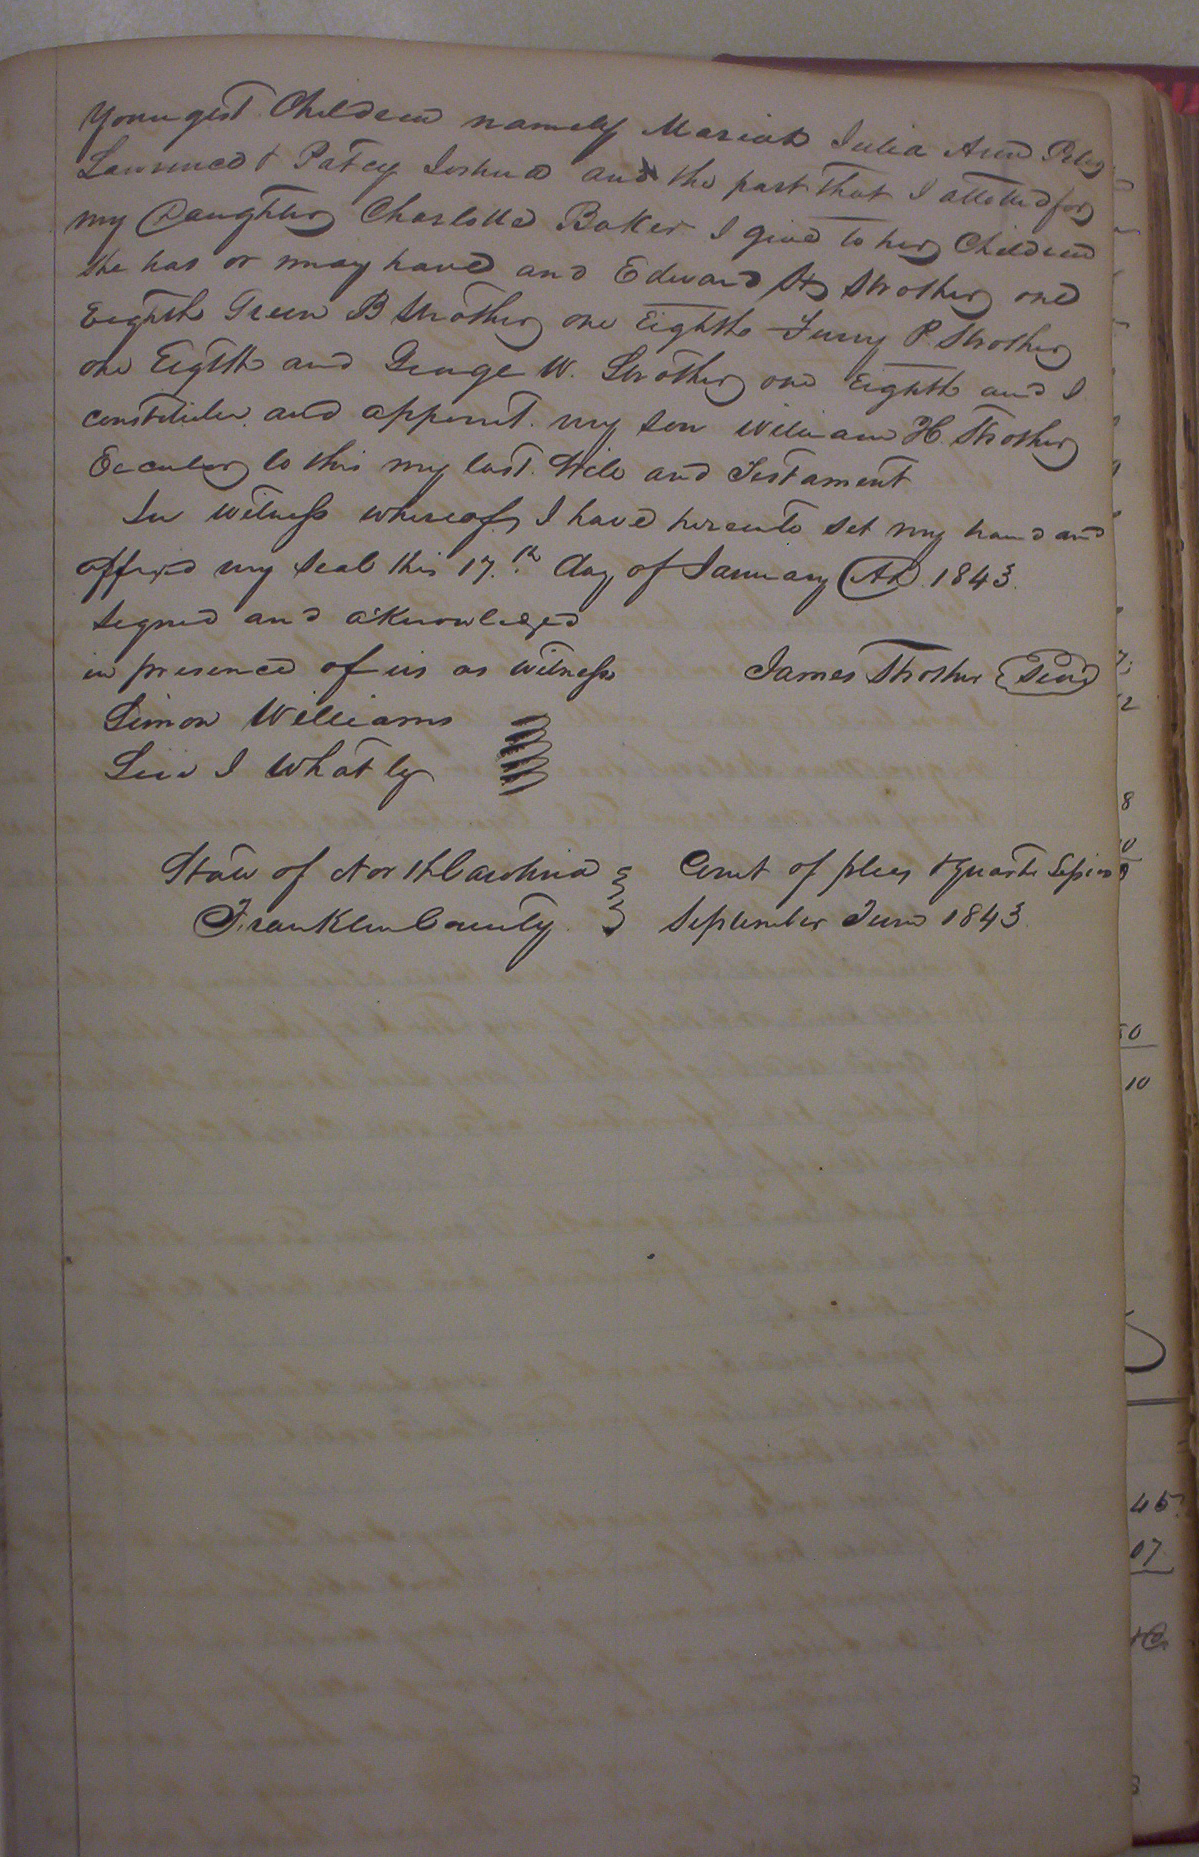 youngest Children namely Mariah Julia Ann Peley
Lawrence & Patcy Joshua and the part that I allotted for
my Daughter Charlotte Baker I give to her Children
she has or may have and Edward H Strother one
Eighth Green B Strother one Eighth Furny P. Strother
one Eigth and George W. Strother one Eighth and I
constitute and appoint my son William H. Strother
Executor to this my last Will and Testament
In witness whereof I have hereunto set my hand and
affixed my seal this 17th day of January AD 1843.
Signed and aknowledged
in presence of us as witness James Strother Seal
Simon Williams
I Whatley
State of North Carolina Court of pleas & Quarter Sessions
Franklin County September Term 1843.
7;
2
8
0
50
10
45
07